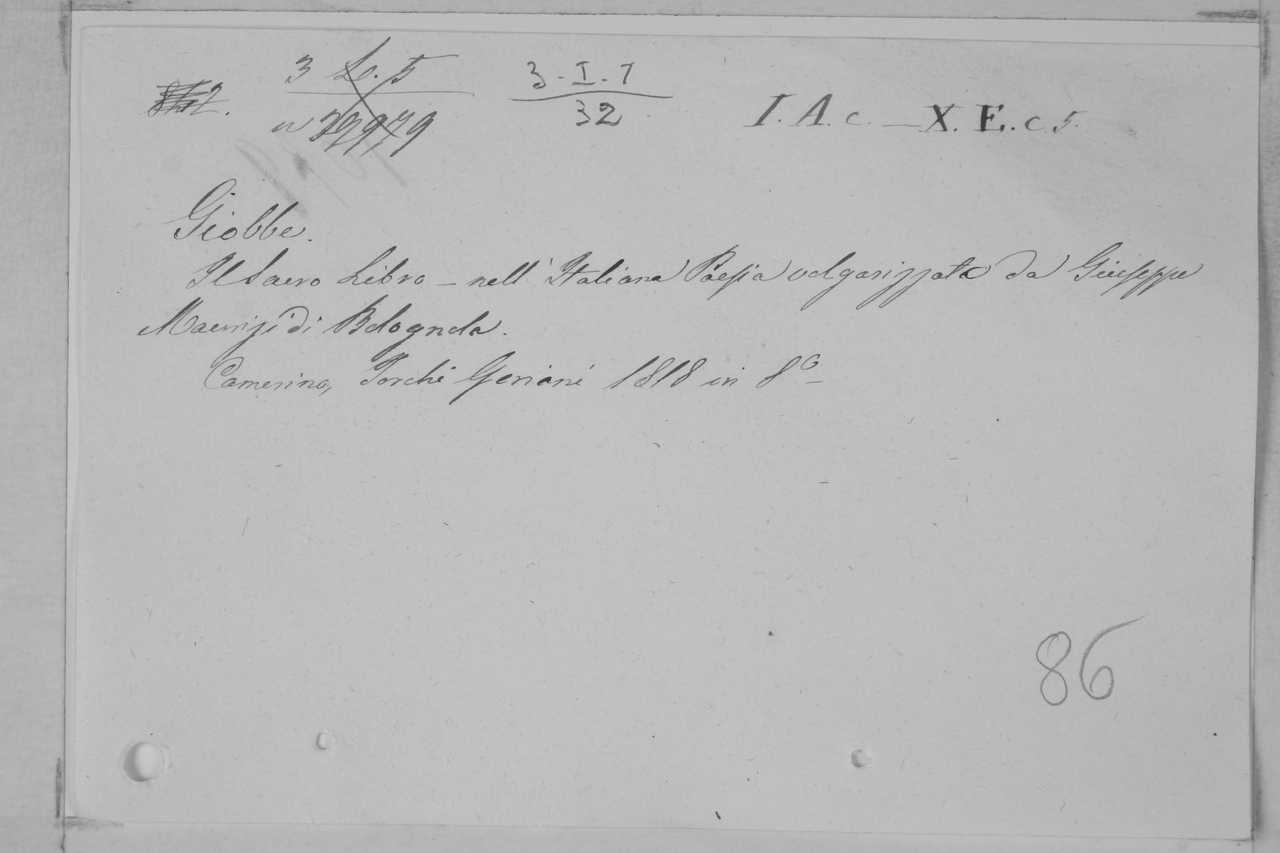 3 L. 5
n 29979
3-I-7
32
I. A. c. — X. E. c 5.
Giobbe.
Il Sacro Libro — nell' Italiana Poesia volgarizzata da Giuseppe
di Bolognola.
Camerino, Torchi Goriani 1818 in 8º
86